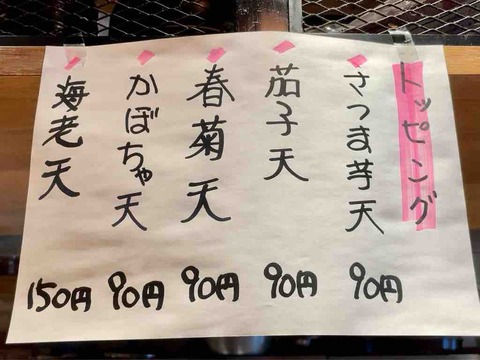 トッピング
さつま芋天 90円
茄子天 90円
春菊天 90円
かぼちゃ天 90円
海老天 150円